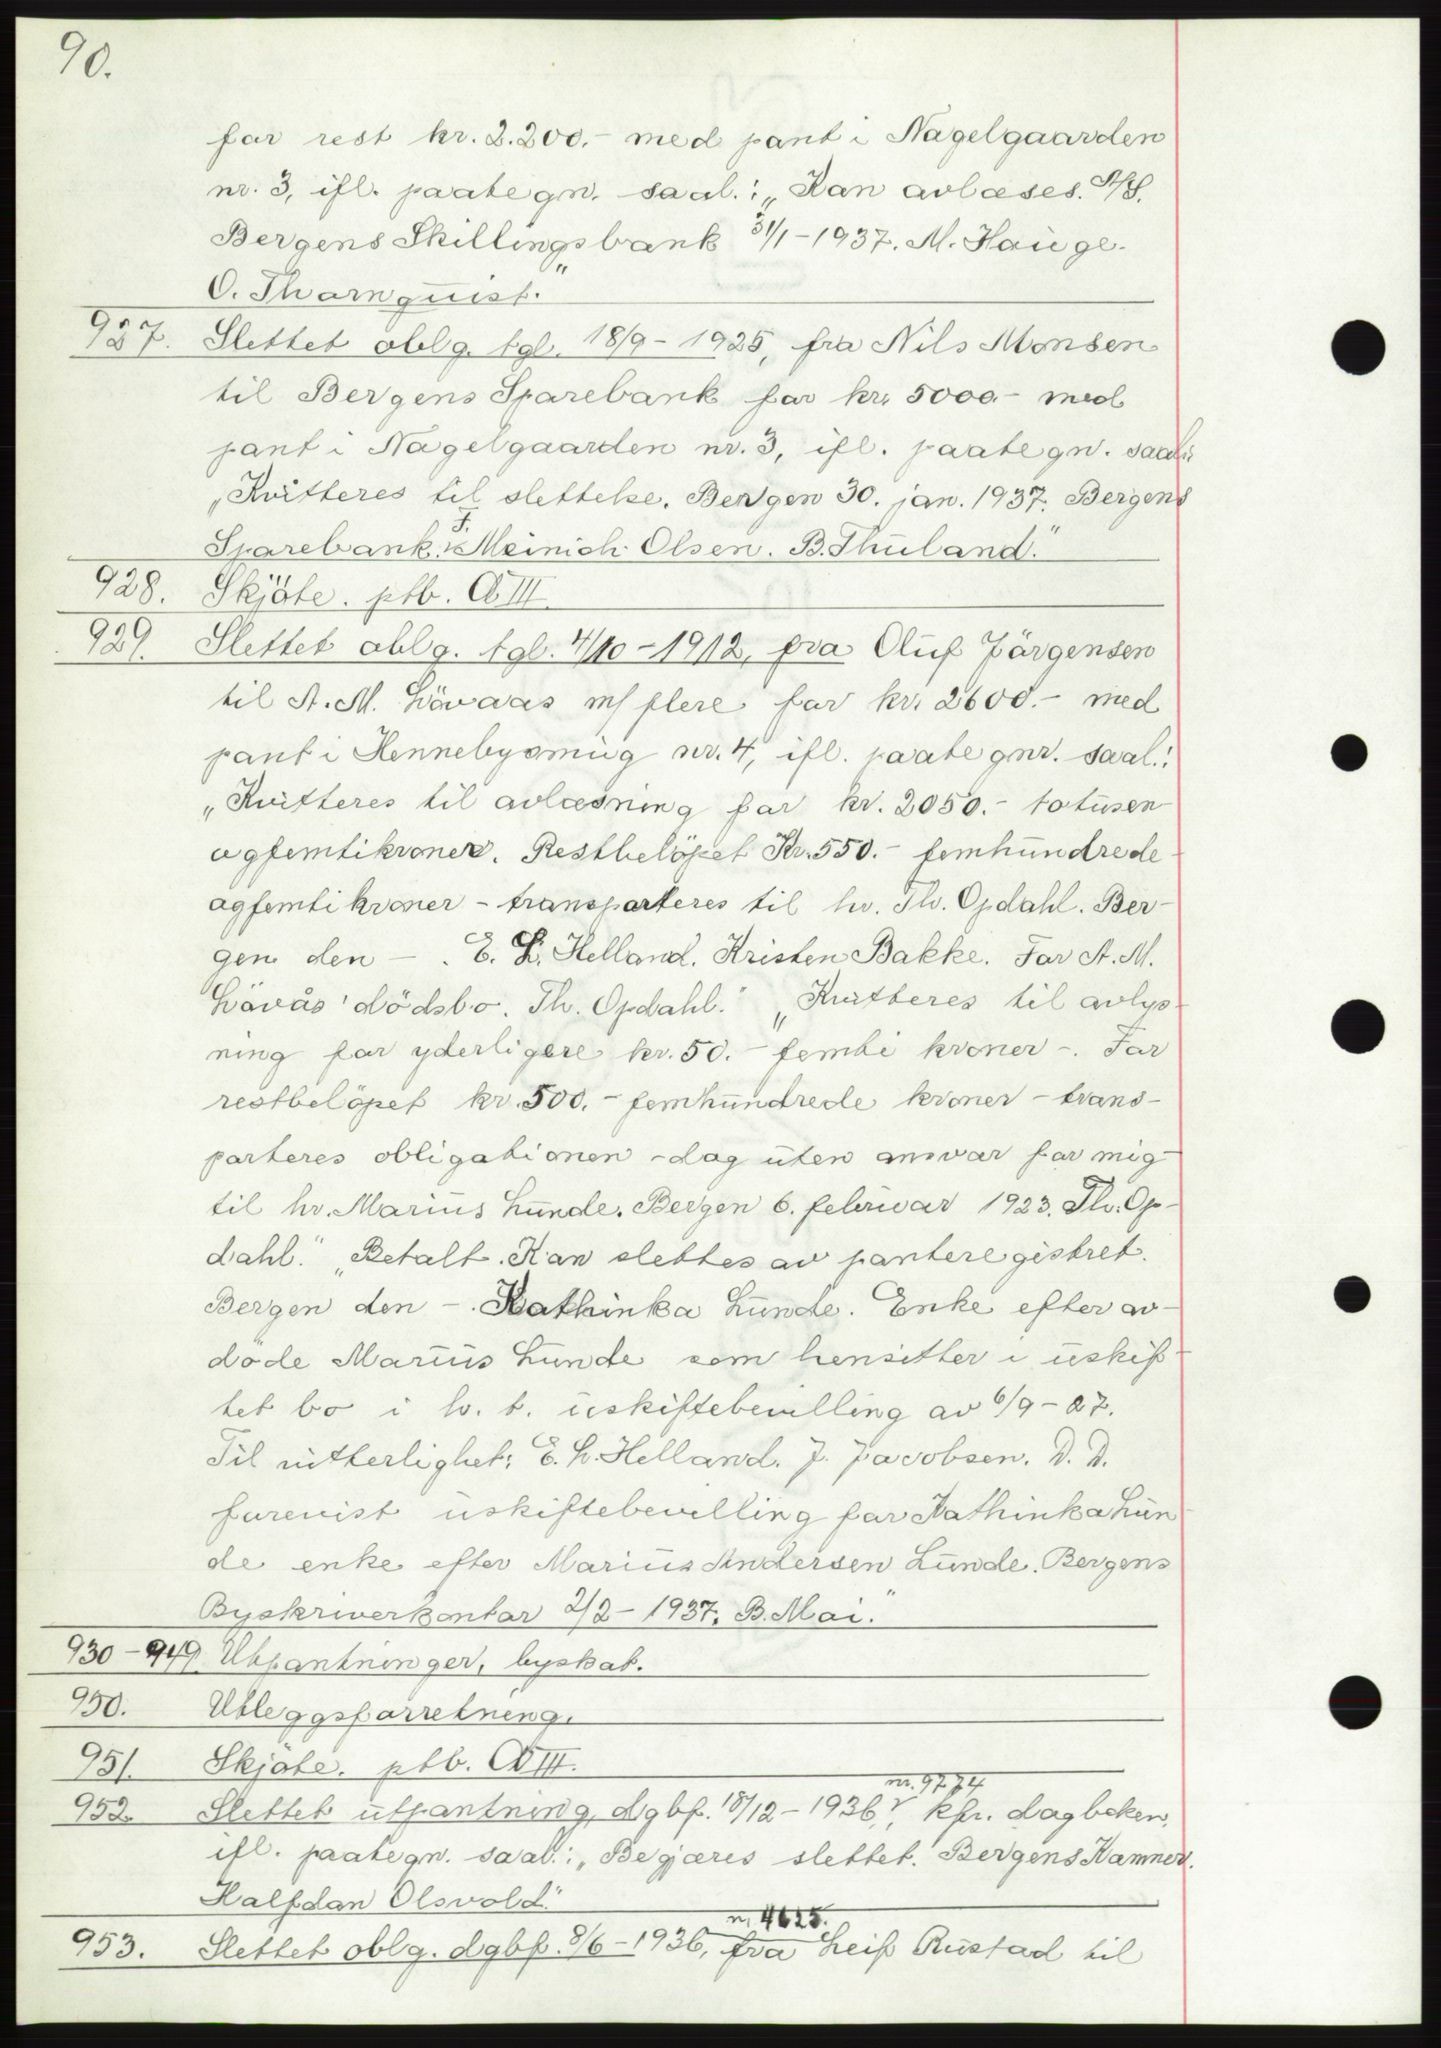 90.
for rest kr. 2.200.- med pant i Nagelgaarden
nr. 3, ifl. paategn. saal.: „Kan avlæses. A/S.
Bergens Skillingsbank 31/1-1937. M. Hauge.
O. Thornquist."
927. Slettet oblg. tgl. 18/9-1925, fra Nils Monsen
til Bergens Sparebank for kr. 5000.- med
pant i Nagelgaarden nr. 3, ifl. paategn. saal.:
„Kvitteres til slettelse. Bergen 30. jan. 1937. Bergens
Sparebank. F. Meinich Olsen. B. Thuland."
928. Skjöte. ptb. CB III.
929. Slettet oblg. tgl. 4/10-1912, fra Oluf Jörgensen
til A. M. Lövaas m/ flere for kr. 2600.- med
pant i Hennebysmug nr. 4, ifl. paategnr. saal.:
„Kvitteres til avlæsning for kr. 2050.- totusen
ogfemtikroner. Restbelöpet Kr. 550.- femhundrede
ogfemti kroner - transporteres til hr. Th. Opdahl. Ber-
gen den - . E. L. Helland. Kristen Bakke. For A. M.
Lövås' dödsbo. Th. Opdahl." „Kvitteres til avlys-
ning for yderligere kr. 50.- femti kroner -. For
restbelöpet kr. 500.- femhundrede kroner - trans-
porteres obligationen - dog uten ansvar for mig -
til hr. Marius Lunde. Bergen 6. februar 1923. Th. Op-
dahl." „Betalt. Kan slettes av panteregistret.
Bergen den -. Kathinka Lunde. Enke efter av-
döde Marius Lunde som hensitter i uskif-
tet bo i h. t. uskiftebevilling av 6/9-27.
Til vitterlighet: E. L. Helland. J. Jacobsen. D. D.
forevist uskiftebevilling for Kathinka Lun
de enke efter Marius Andersen Lunde. Bergens
Byskriverkontor 2/2-1937. B. Mai."
930-949. Utpantninger, byskat.
950. Utleggsforretning.
951. Skjöte. ptb. CB III.
952. Slettet utpantning, dgbf. 18/12-1936, nr. 9774, kfr. dagboken,
ifl. paategn. saal.: „Begjæres slettet. Bergens Kæmner.
Halfdan Olsvold."
953. Slettet oblg. dgbf. 8/6-1936, n. 4625. fra Leif Rustad til